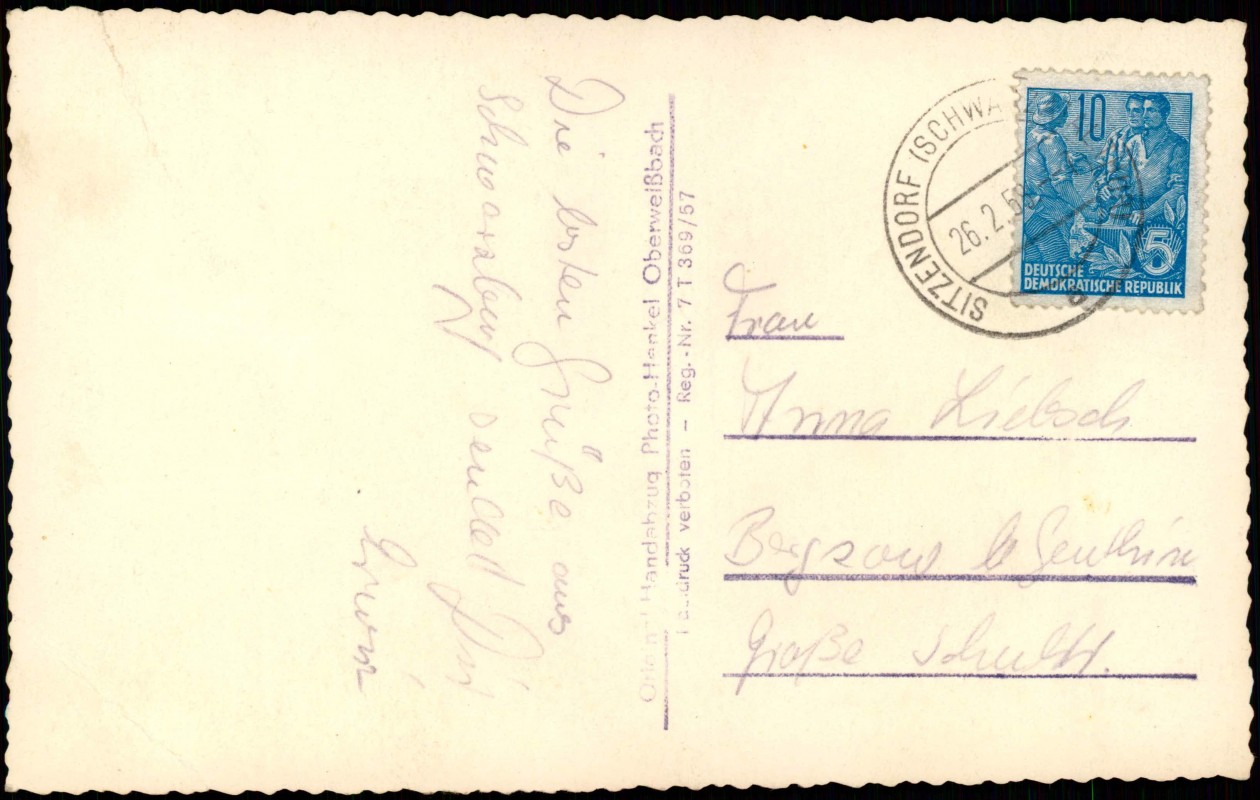 Die besten Grüße aus
Schwarzburg sendet Dir
Erwin
Handabzug Photo-Henkel Oberweißbach
verboten – Reg.-Nr. 7 T 369/57
SITZENDORF (SCHWA
26.2.5
10
5
DEUTSCHE
DEMOKRATISCHE REPUBLIK
Frau
Anna Liebsch
Bergzow b Genthin
Große Schulstr.